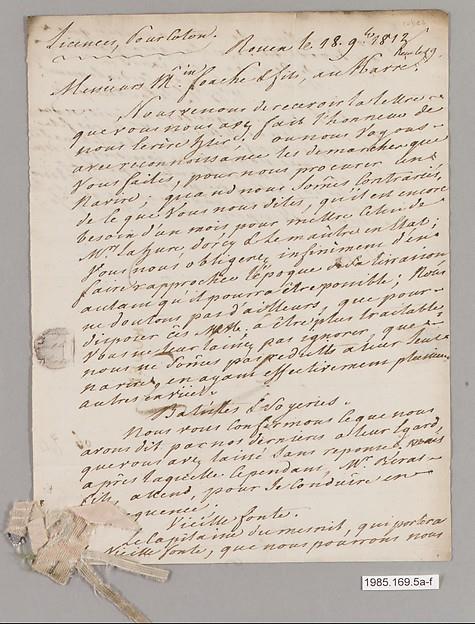 Licences, pour Coton.
Rouen le 18. 9bre 1812
Messieurs Mtin foache & fils, au Havre.
Nous venons de recevoir la lettre
que vous nous avez fait l'honneur de
nous écrire hier, où nous voyons
avec reconnaissance les démarches que
vous faites, pour nous procurer un
Navire; quand nous sommes contrariés
de ce que vous nous dites, qu'il est encore
besoin d'un mois pour mettre celui de
Mrs & Lemaitre en état;
Vous nous obligerez infiniment d'en
faire rapprocher l'époque de sa livraison
autant qu'il pourra être possible; Nous
ne doutons pas d'ailleurs, que pour
disposer ces Mrs. à être plus traitables
Vous ne leur laissez pas ignorer, que
nous ne sommes pas réduits à leur seul
navire, en ayant effectivement plusieurs
autres en vue.
Batistes & Soyeries.
Nous vous confirmons ce que nous
avons dit par nos dernières à leur égard,
que vous avez laissé sans réponse, mais
après laquelle cependant, Mr.
fils, attend, pour se conduire en
Vieille fonte.
Le Capitaine dumesnil, qui portera
Vieille fonte, que nous pourrons nous
1985.169.5a-f